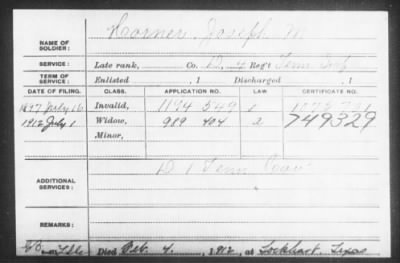 NAME OF SOLDIER: Horner, Joseph M
SERVICE: Late rank, Co. D, 4 Reg't Tenn Inf
TERM OF SERVICE: Enlisted , 1 Discharged , 1
DATE OF FILING. CLASS. APPLICATION NO. LAW CERTIFICATE NO.
1897 July 16 Invalid, 1194 549
1912 July 1 Widow, 989 404 2 749329
Minor,
ADDITIONAL SERVICES: D 1 Tenn Cav
REMARKS:
Died Feb. 4, 1912, at Lockhart, Texas